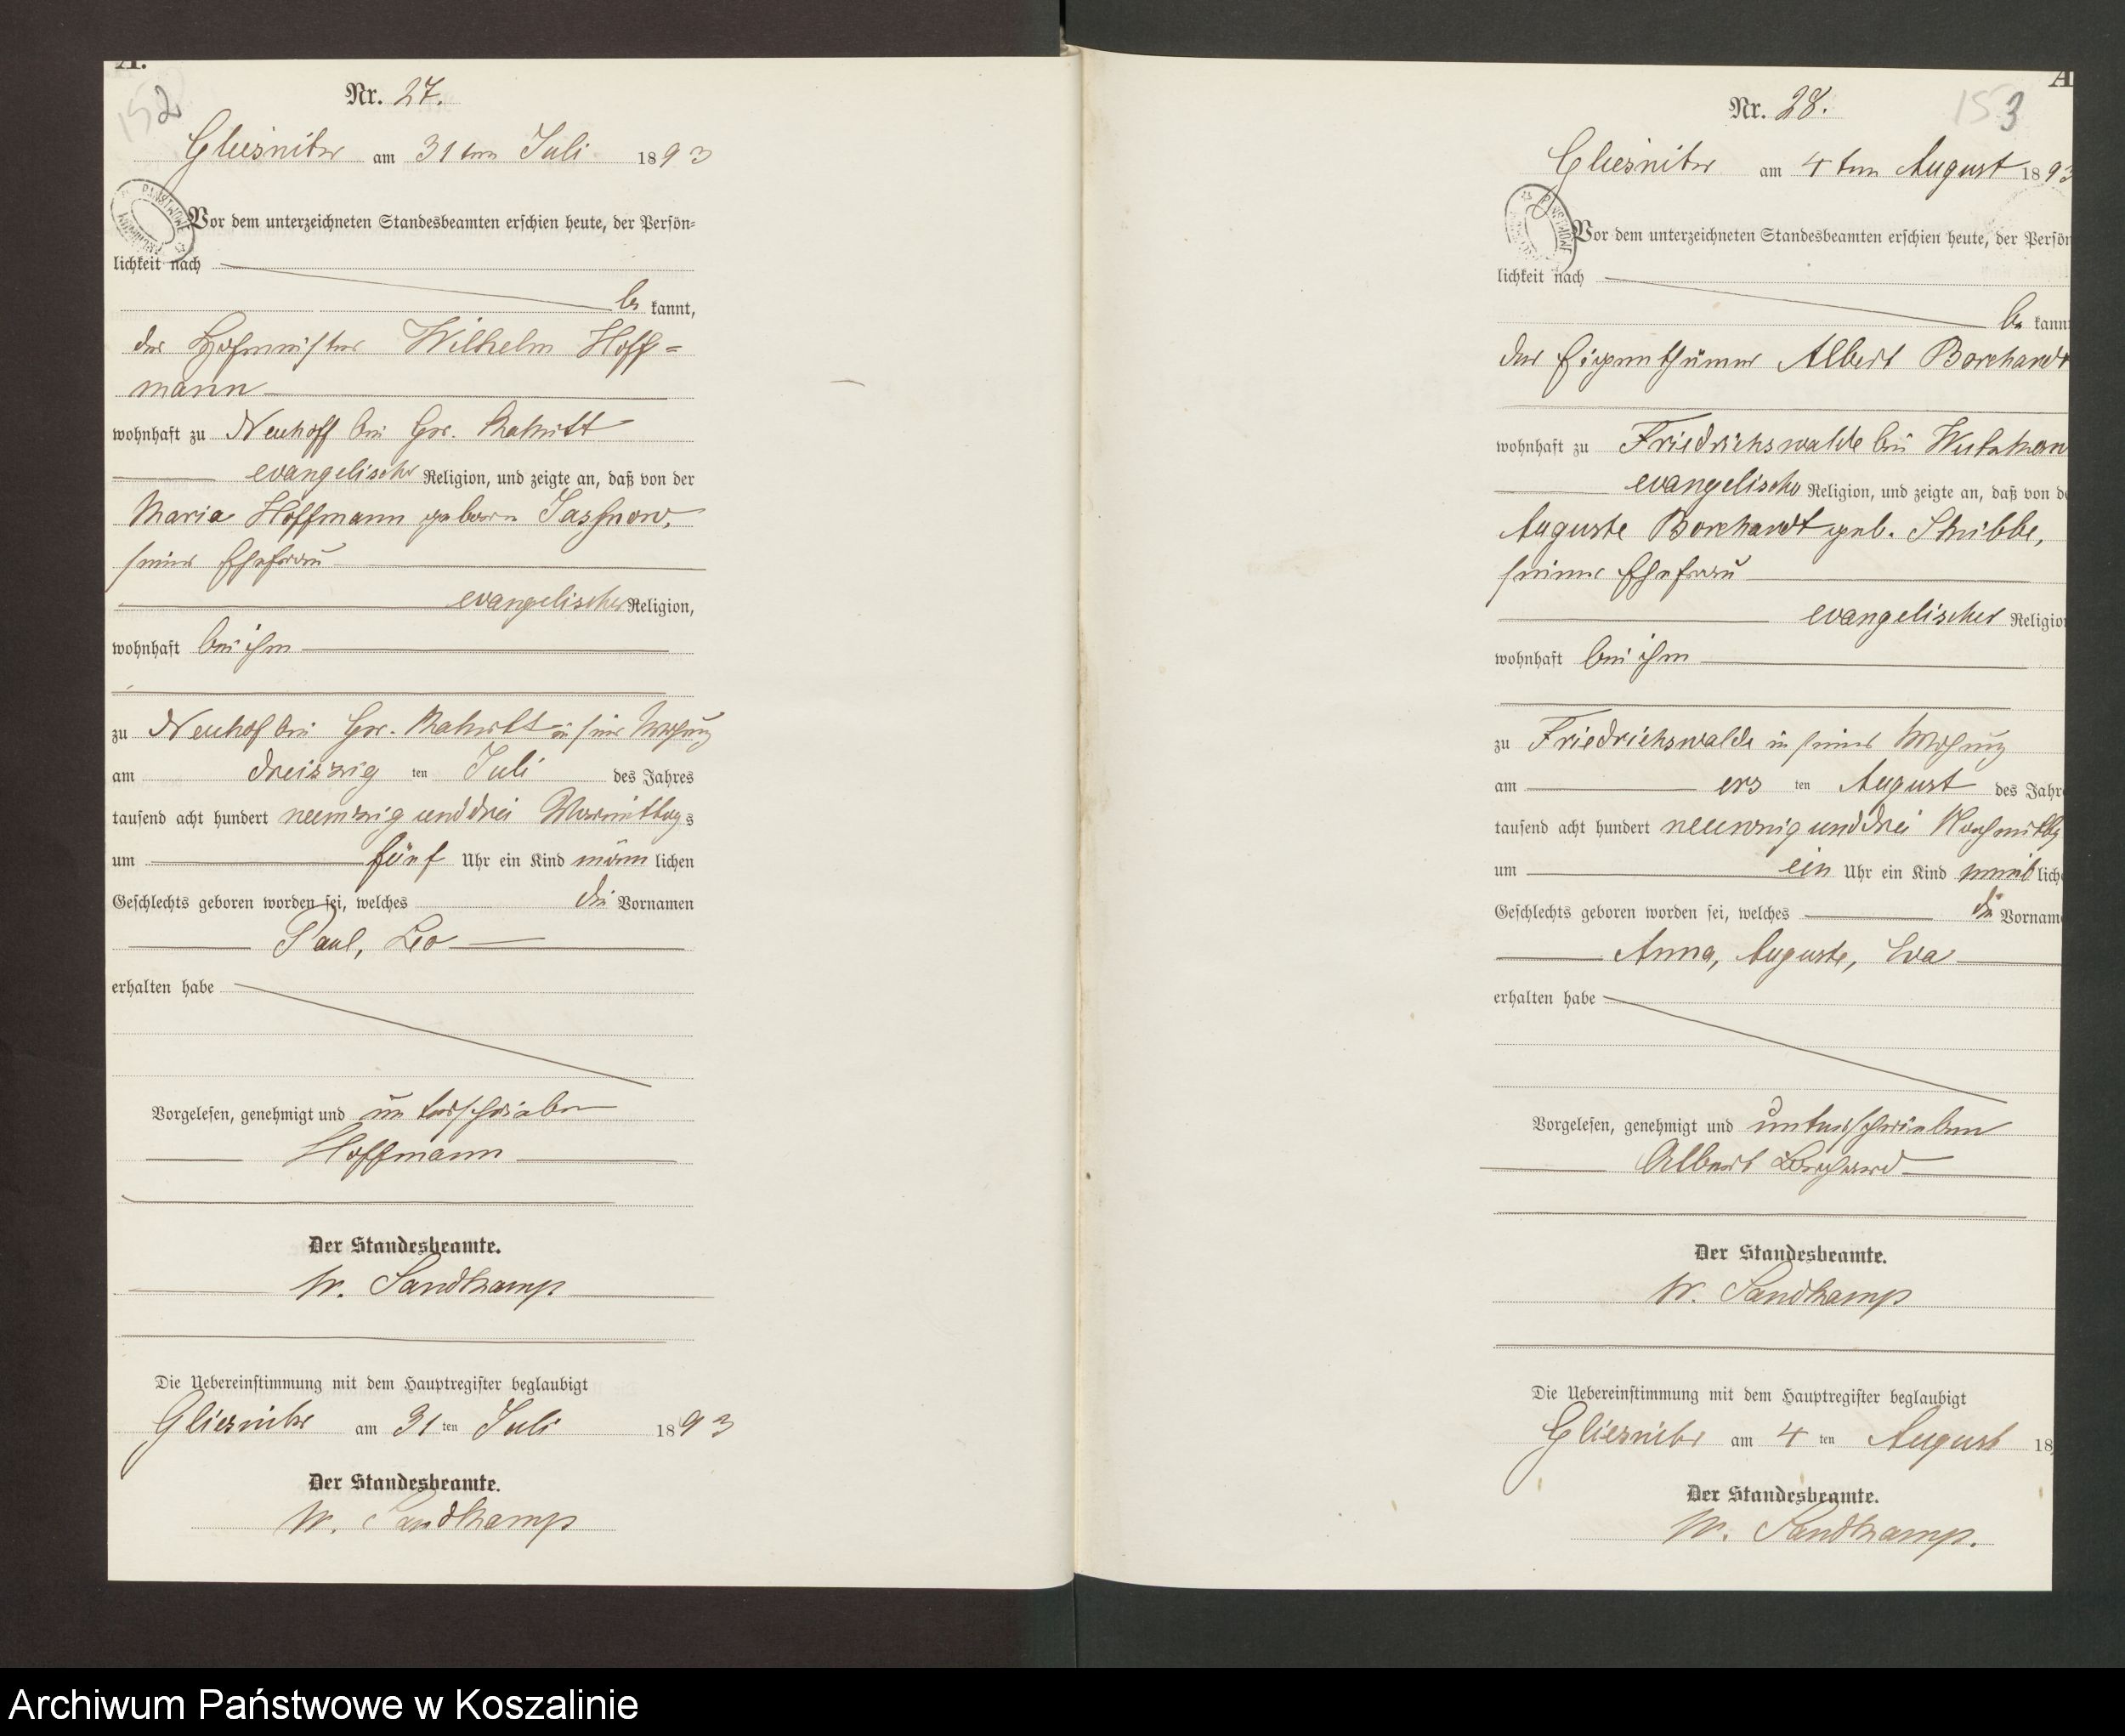 A.
152
Nr. 27.
Gliesnitz am 31ten Juli 1893
Vor dem unterzeichneten Standesbeamten erschien heute, der Persön-
lichkeit nach
be kannt,
der Hofmeister Wilhelm Hoff=
mann
wohnhaft zu Neuhoff bei Gr.
evangelischer Religion, und zeigte an, daß von der
Maria Hoffmann geborene
seiner Ehefrau
evangelischer Religion,
wohnhaft bei ihm
zu Neuhof bei Gr. in seiner Wohnung
am dreiszig ten Juli des Jahres
tausend acht hundert neunzig und drei Vormittags
um fünf Uhr ein Kind männ lichen
Geschlechts geboren worden sei, welches die Vornamen
Paul, Leo
erhalten habe
Vorgelesen, genehmigt und unterschrieben
Hoffmann
Der Standesbeamte.
W. Sandkamp
Die Uebereinstimmung mit dem Hauptregister beglaubigt
Gliesnitz am 31 ten Juli 1893
Der Standesbeamte.
W. Sandkamp
A
153
Nr. 28.
Gliesnitz am 4ten August 1893
Vor dem unterzeichneten Standesbeamten erschien heute, der Persön
lichkeit nach
be kann
der Eigenthümer Albert Borchardt
wohnhaft zu Friedrichswalde bei
evangelischer Religion, und zeigte an, daß von de
Auguste Borchardt geb. Stubbe,
seiner Ehefrau
evangelischer Religio
wohnhaft bei ihm
zu Friedrichswalde in seiner Wohnung
am ers ten August des Jahr
tausend acht hundert neunzig und drei Nachmittags
um ein Uhr ein Kind weib lich
Geschlechts geboren worden sei, welches die Vornam
Anna, Auguste, Eva
erhalten habe
Vorgelesen, genehmigt und unterschrieben
Albert Borchard
Der Standesbeamte.
W. Sandkamp
Die Uebereinstimmung mit dem Hauptregister beglaubigt
Gliesnitz am 4 ten August 18
Der Standesbeamte.
W. Sandkamp.
Archiwum Państwowe w Koszalinie